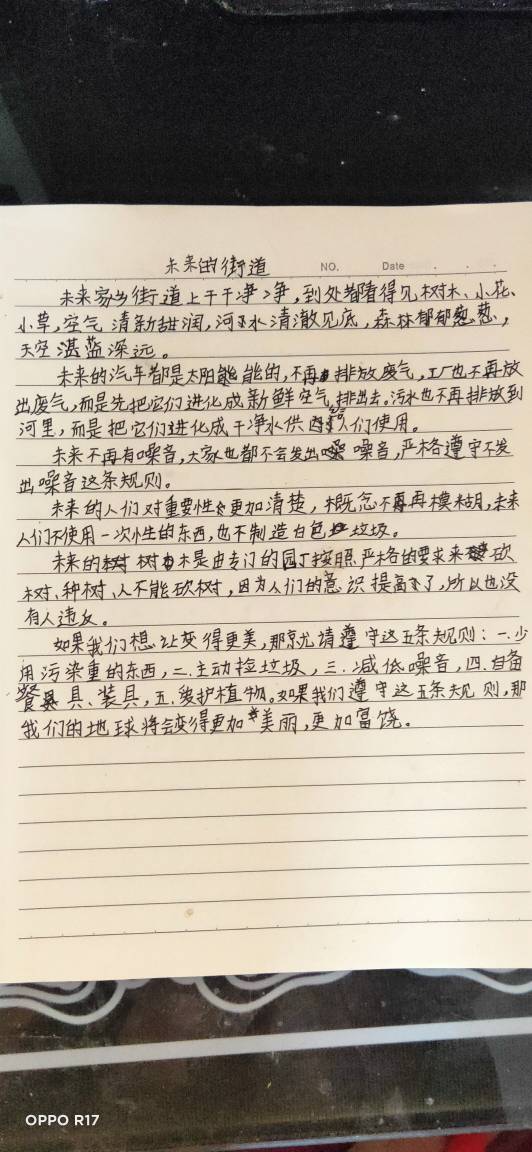 未来的街道
NO.
Date
未来家乡街道上干干净净,到处都看得见树木、小花、
小草,空气清新甜润,河水清澈见底,森林郁郁葱葱,
天空湛蓝深远。
未来的汽车都是太阳能的,不再排放废气,工厂也不再放
出废气,而是先把它们进化成新鲜空气排出去。污水也不再排放到
河里,而是把它们进化成干净水供给人们使用。
未来不再有噪音,大家也都不会发出噪音,严格遵守不发
出噪音这条规则。
未来的人们对重要性更加清楚,概念不再模糊,未来
人们不使用一次性的东西,也不制造白色垃圾。
未来的树木是由专门的园丁按照严格的要求来砍
树、种树、人不能砍树,因为人们的意识提高了,所以也没
有人违反。
如果我们想让变得更美,那就请遵守这五条规则:一.少
用污染重的东西,二.主动捡垃圾,三.减低噪音,四.自备
餐具、装具,五.爱护植物。如果我们遵守这五条规则,那
我们的地球将会变得更加美丽,更加富饶。
OPPO R17